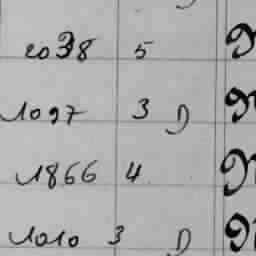 2038 5
1097 3 D
1866 4
1010 3 D